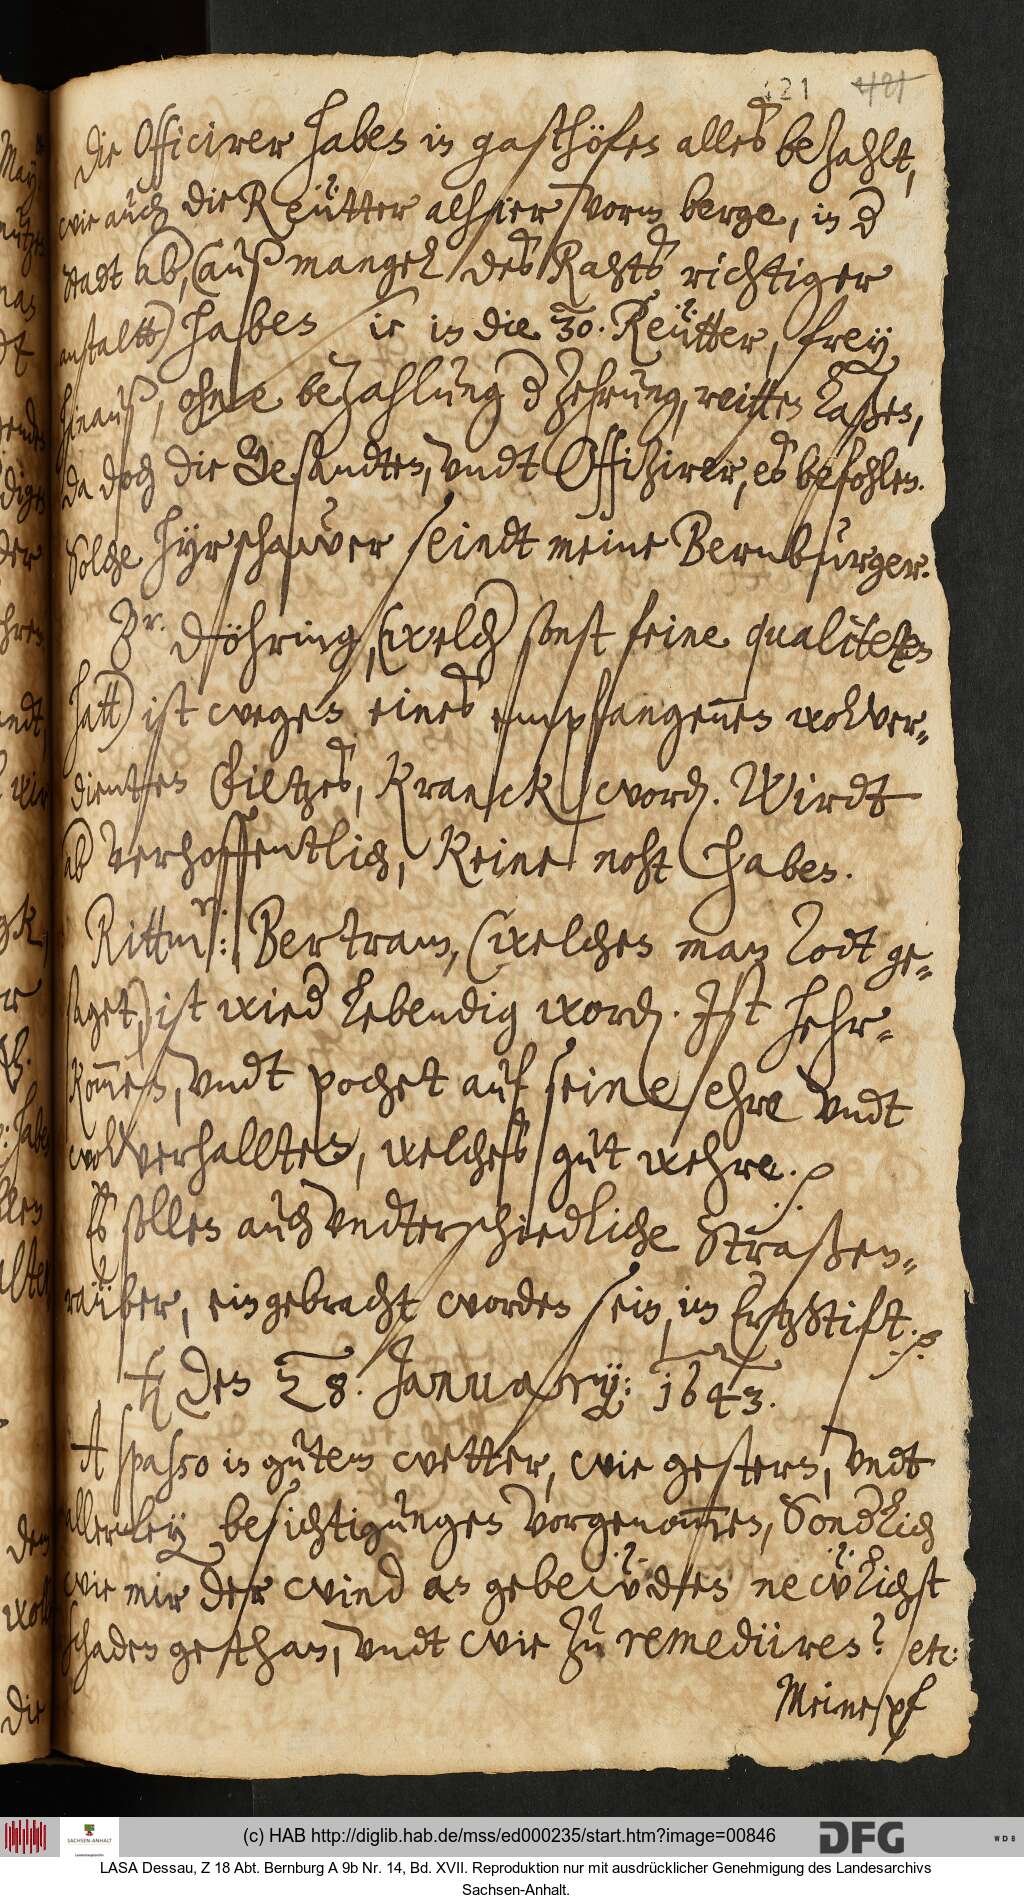 421 421
die Officirer haben in gasthöfen alles bezahlt,
wie auch die Reütter alhier vorm berge, in d
stadt ab, (auß mangel des Rahts richtiger
anstaltt) haben in die 30. Reütter, frey
hinauß, ohne bezahlung d zehrung, reitten laßen,
da doch die Gesandten, vndt Offizirer, es befohlen.
Solche hyrschawer seindt meine Bernburger.
Döhring, (welch sonst feine qualiteten
hatt) ist wegen eines empfangenen wolver-
dientten filtzes, Kranck word. Wirdt
ab verhoffentlich, Keine noht haben.
Rittm: Bertram, (welchen man Todt ge-
saget,) ist wied lebendig word. Jst hehr-
kommen, vndt pochet auf seine ehre vndt
wolverhallten, welches gut wehre.
Es sollen auch vndterschiedliche Straßen-
raüber, eingebracht worden sein, im Ertzstift.
den 28. January: 1643.
A spasso in gutem wetter, wie gestern, vndt
allerley besichtigungen vorgenommen, Sondlich
wie mir der wind an gebewden newlichst
schaden gethan, vndt wie zu remediiren? etc:
Meine pf
(c) HAB http://diglib.hab.de/mss/ed000235/start.htm?image=00846
SACHSEN-ANHALT
DFG
WDB
LASA Dessau, Z 18 Abt. Bernburg A 9b Nr. 14, Bd. XVII. Reproduktion nur mit ausdrücklicher Genehmigung des Landesarchivs
Sachsen-Anhalt.